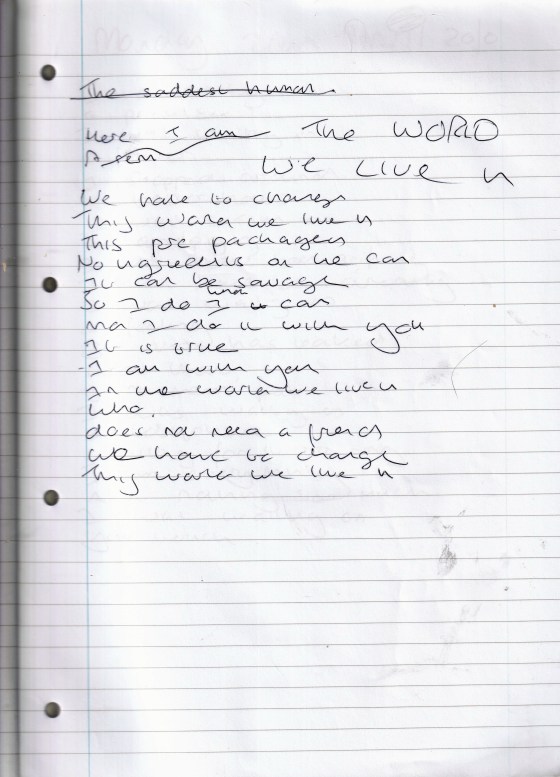 The saddest human.
Here I am The WORLD
A
We LIVE in
We have to change
This world we live in
This pre packaged
No ingredients on the can
It can be savage
So I do what I can
And I do it with you
It is true
I am with you
In the world we live in
Who,
does not need a friend
We have to change
This world we live in